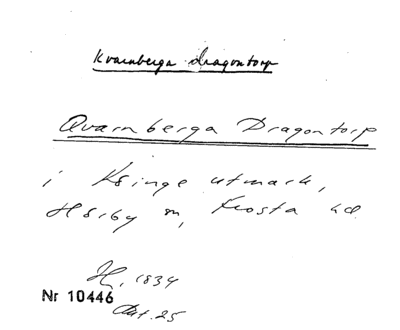 Kvarnberga dragontorp
Qvarnberga Dragontorp
i Ksinge utmark,
Hörby sn, Frosta hd
H, 1834
Nr 10446
Akt. 25